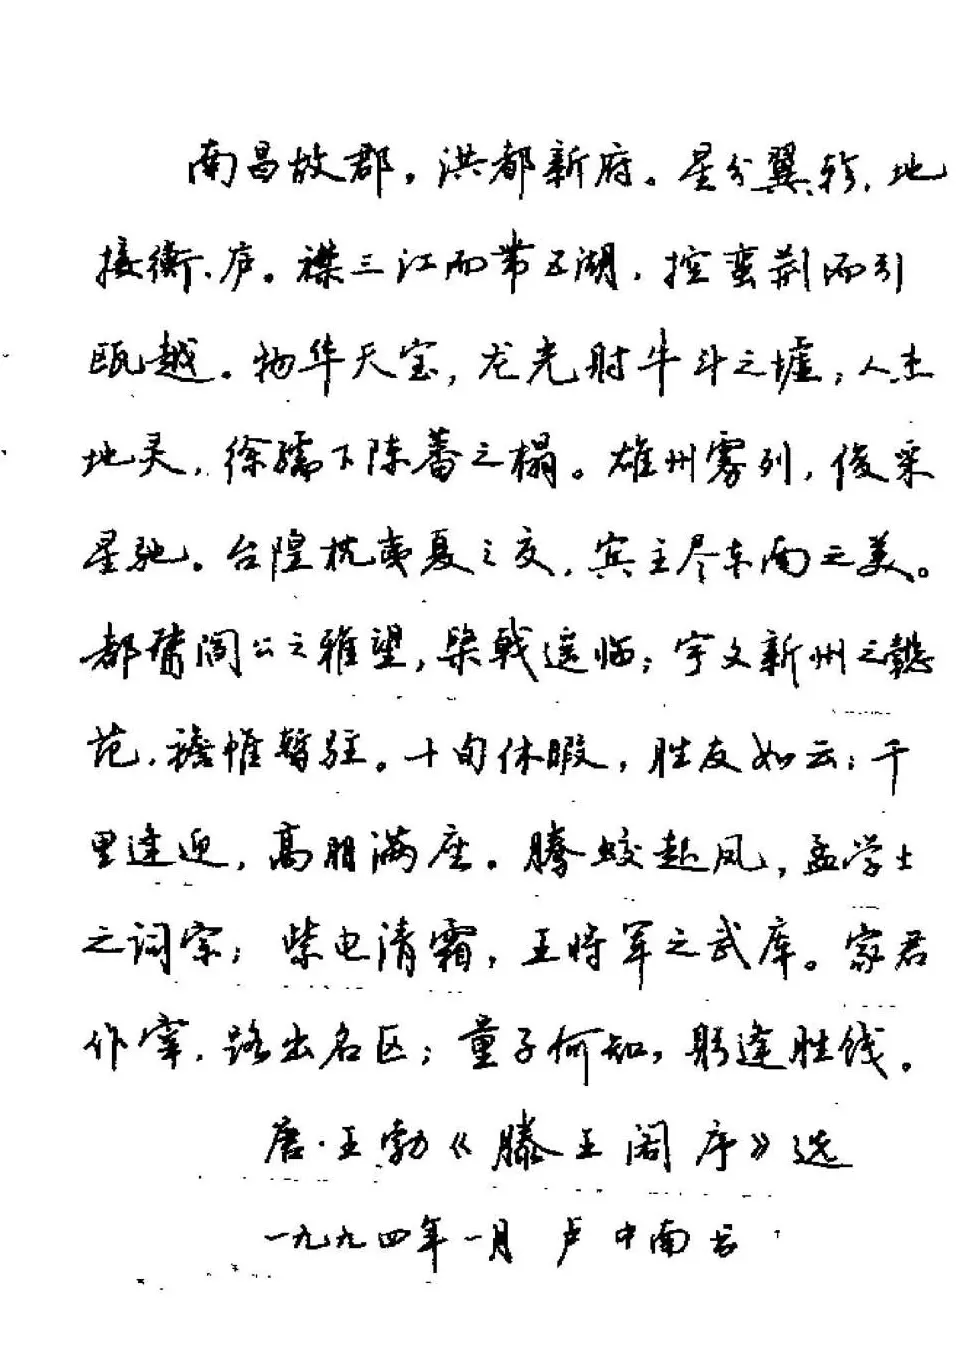 南昌故郡，洪都新府。星分翼轸，地
接衡、庐。襟三江而带五湖，控蛮荆而引
瓯越。物华天宝，龙光射牛斗之墟；人杰
地灵，徐孺下陈蕃之榻。雄州雾列，俊采
星驰。台隍枕夷夏之交，宾主尽东南之美。
都督阎公之雅望，棨戟遥临；宇文新州之懿
范，襜帷暂驻。十旬休暇，胜友如云；千
里逢迎，高朋满座。腾蛟起凤，孟学士
之词宗；紫电清霜，王将军之武库。家君
作宰，路出名区；童子何知，躬逢胜饯。
唐·王勃《滕王阁序》选
一九九四年一月 卢中南书